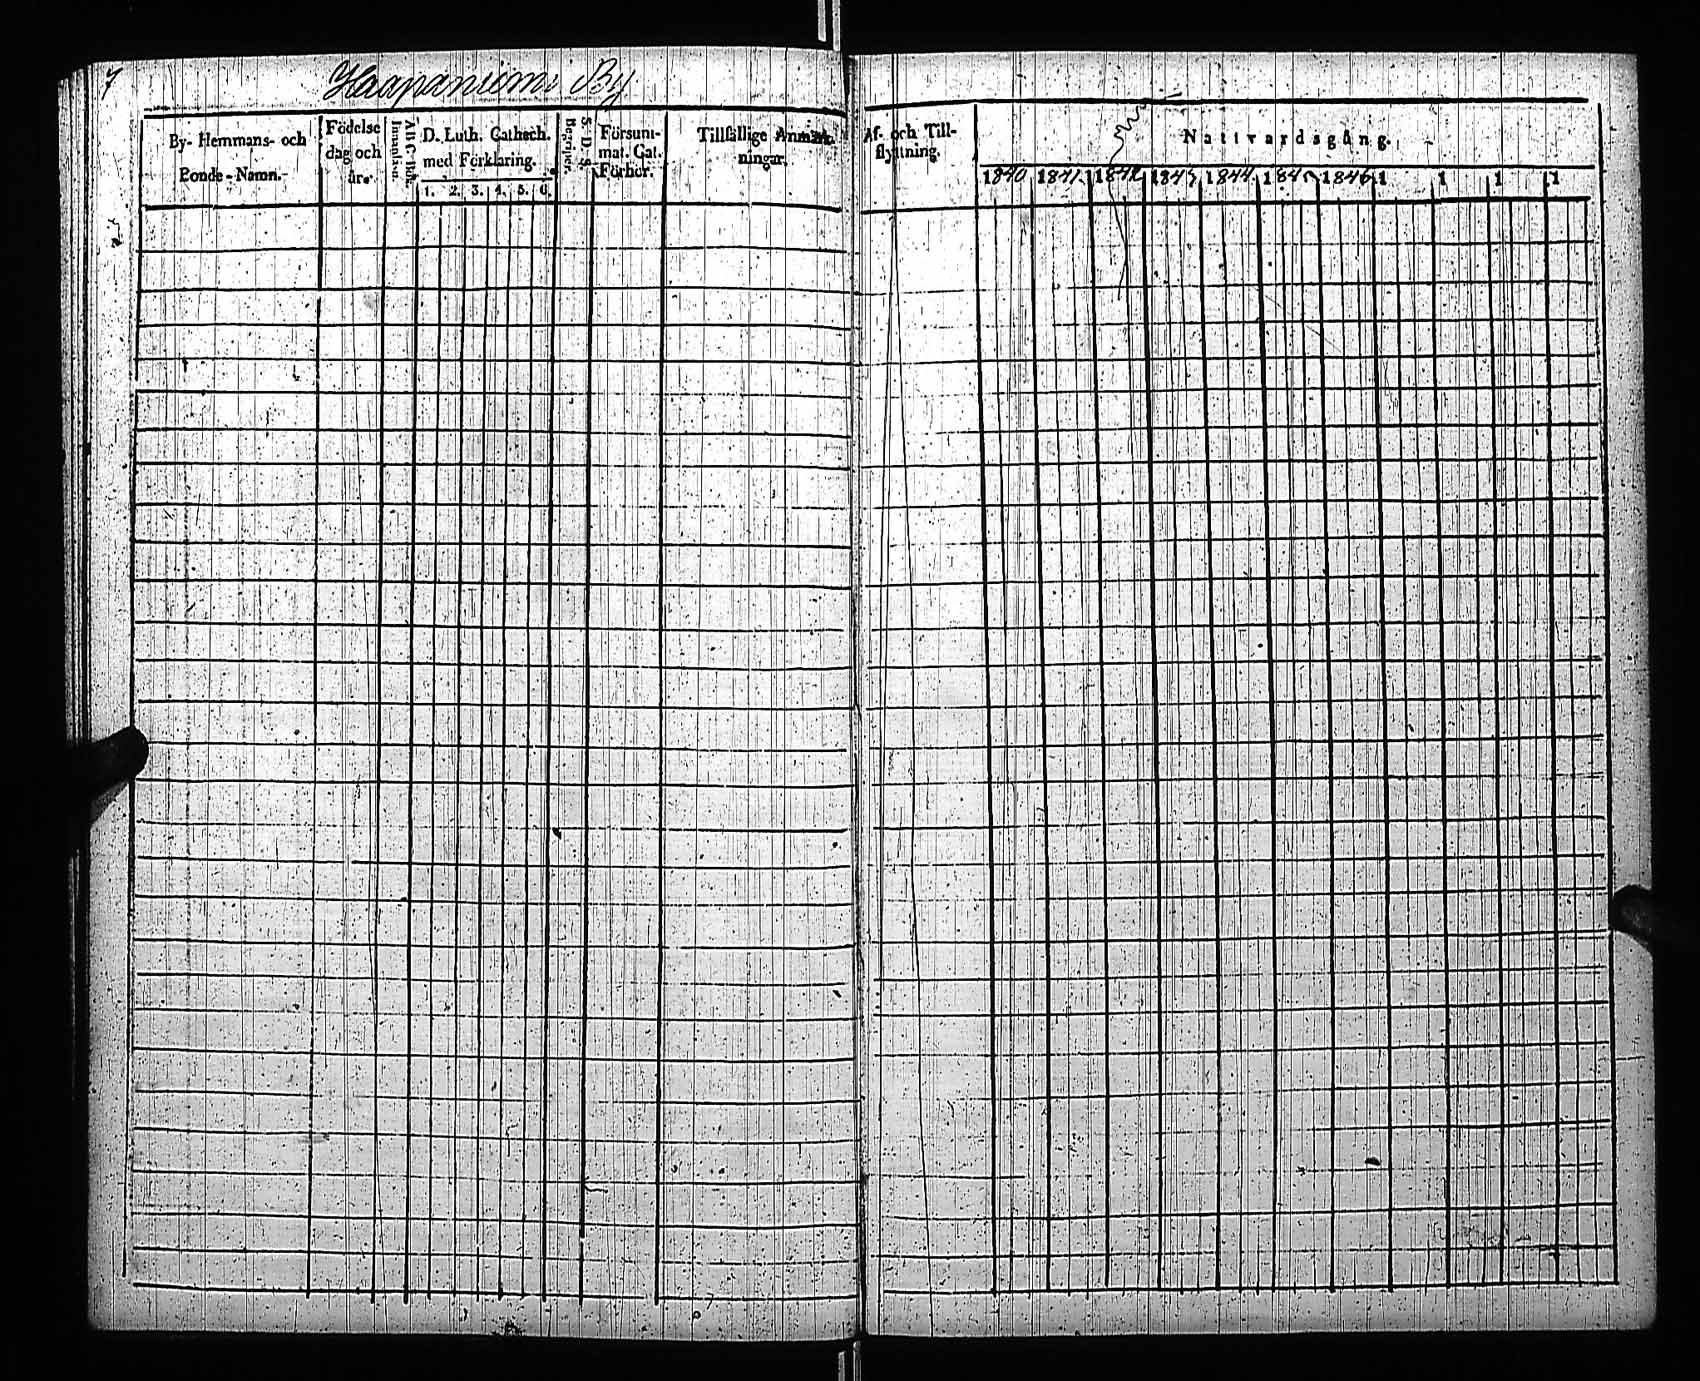 7
Haapaniemi By
By- Hemmans- och
Bonde-Namn.
Födelse
dag och
år.
Ab-C-Bok.
Innanläsn.
D. Luth. Cathech.
med Förklaring.
1. 2. 3. 4. 5. 6.
S. D. S.
Begreper.
Försum-
mat. Cat.
Förhör.
Tillfällige Anmärk-
ningar.
Af- och Till-
flyttning.
Nattvardsgång.
1840 1841 1842 1843 1844 1845 1846 1 1 1 1